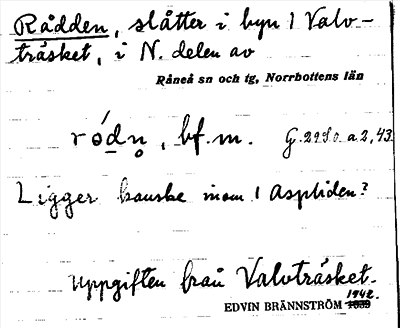 Rådden, slåtter i byn 1 Valv-
träsket, i N. delen av
Råneå sn och tg, Norrbottens län
ródn̥, bf. m. G. 2980. a. 2, 43
Ligger kanske inom 1 Aspliden?
Uppgiften från Valvträsket.
1942.
EDVIN BRÄNNSTRÖM 1939